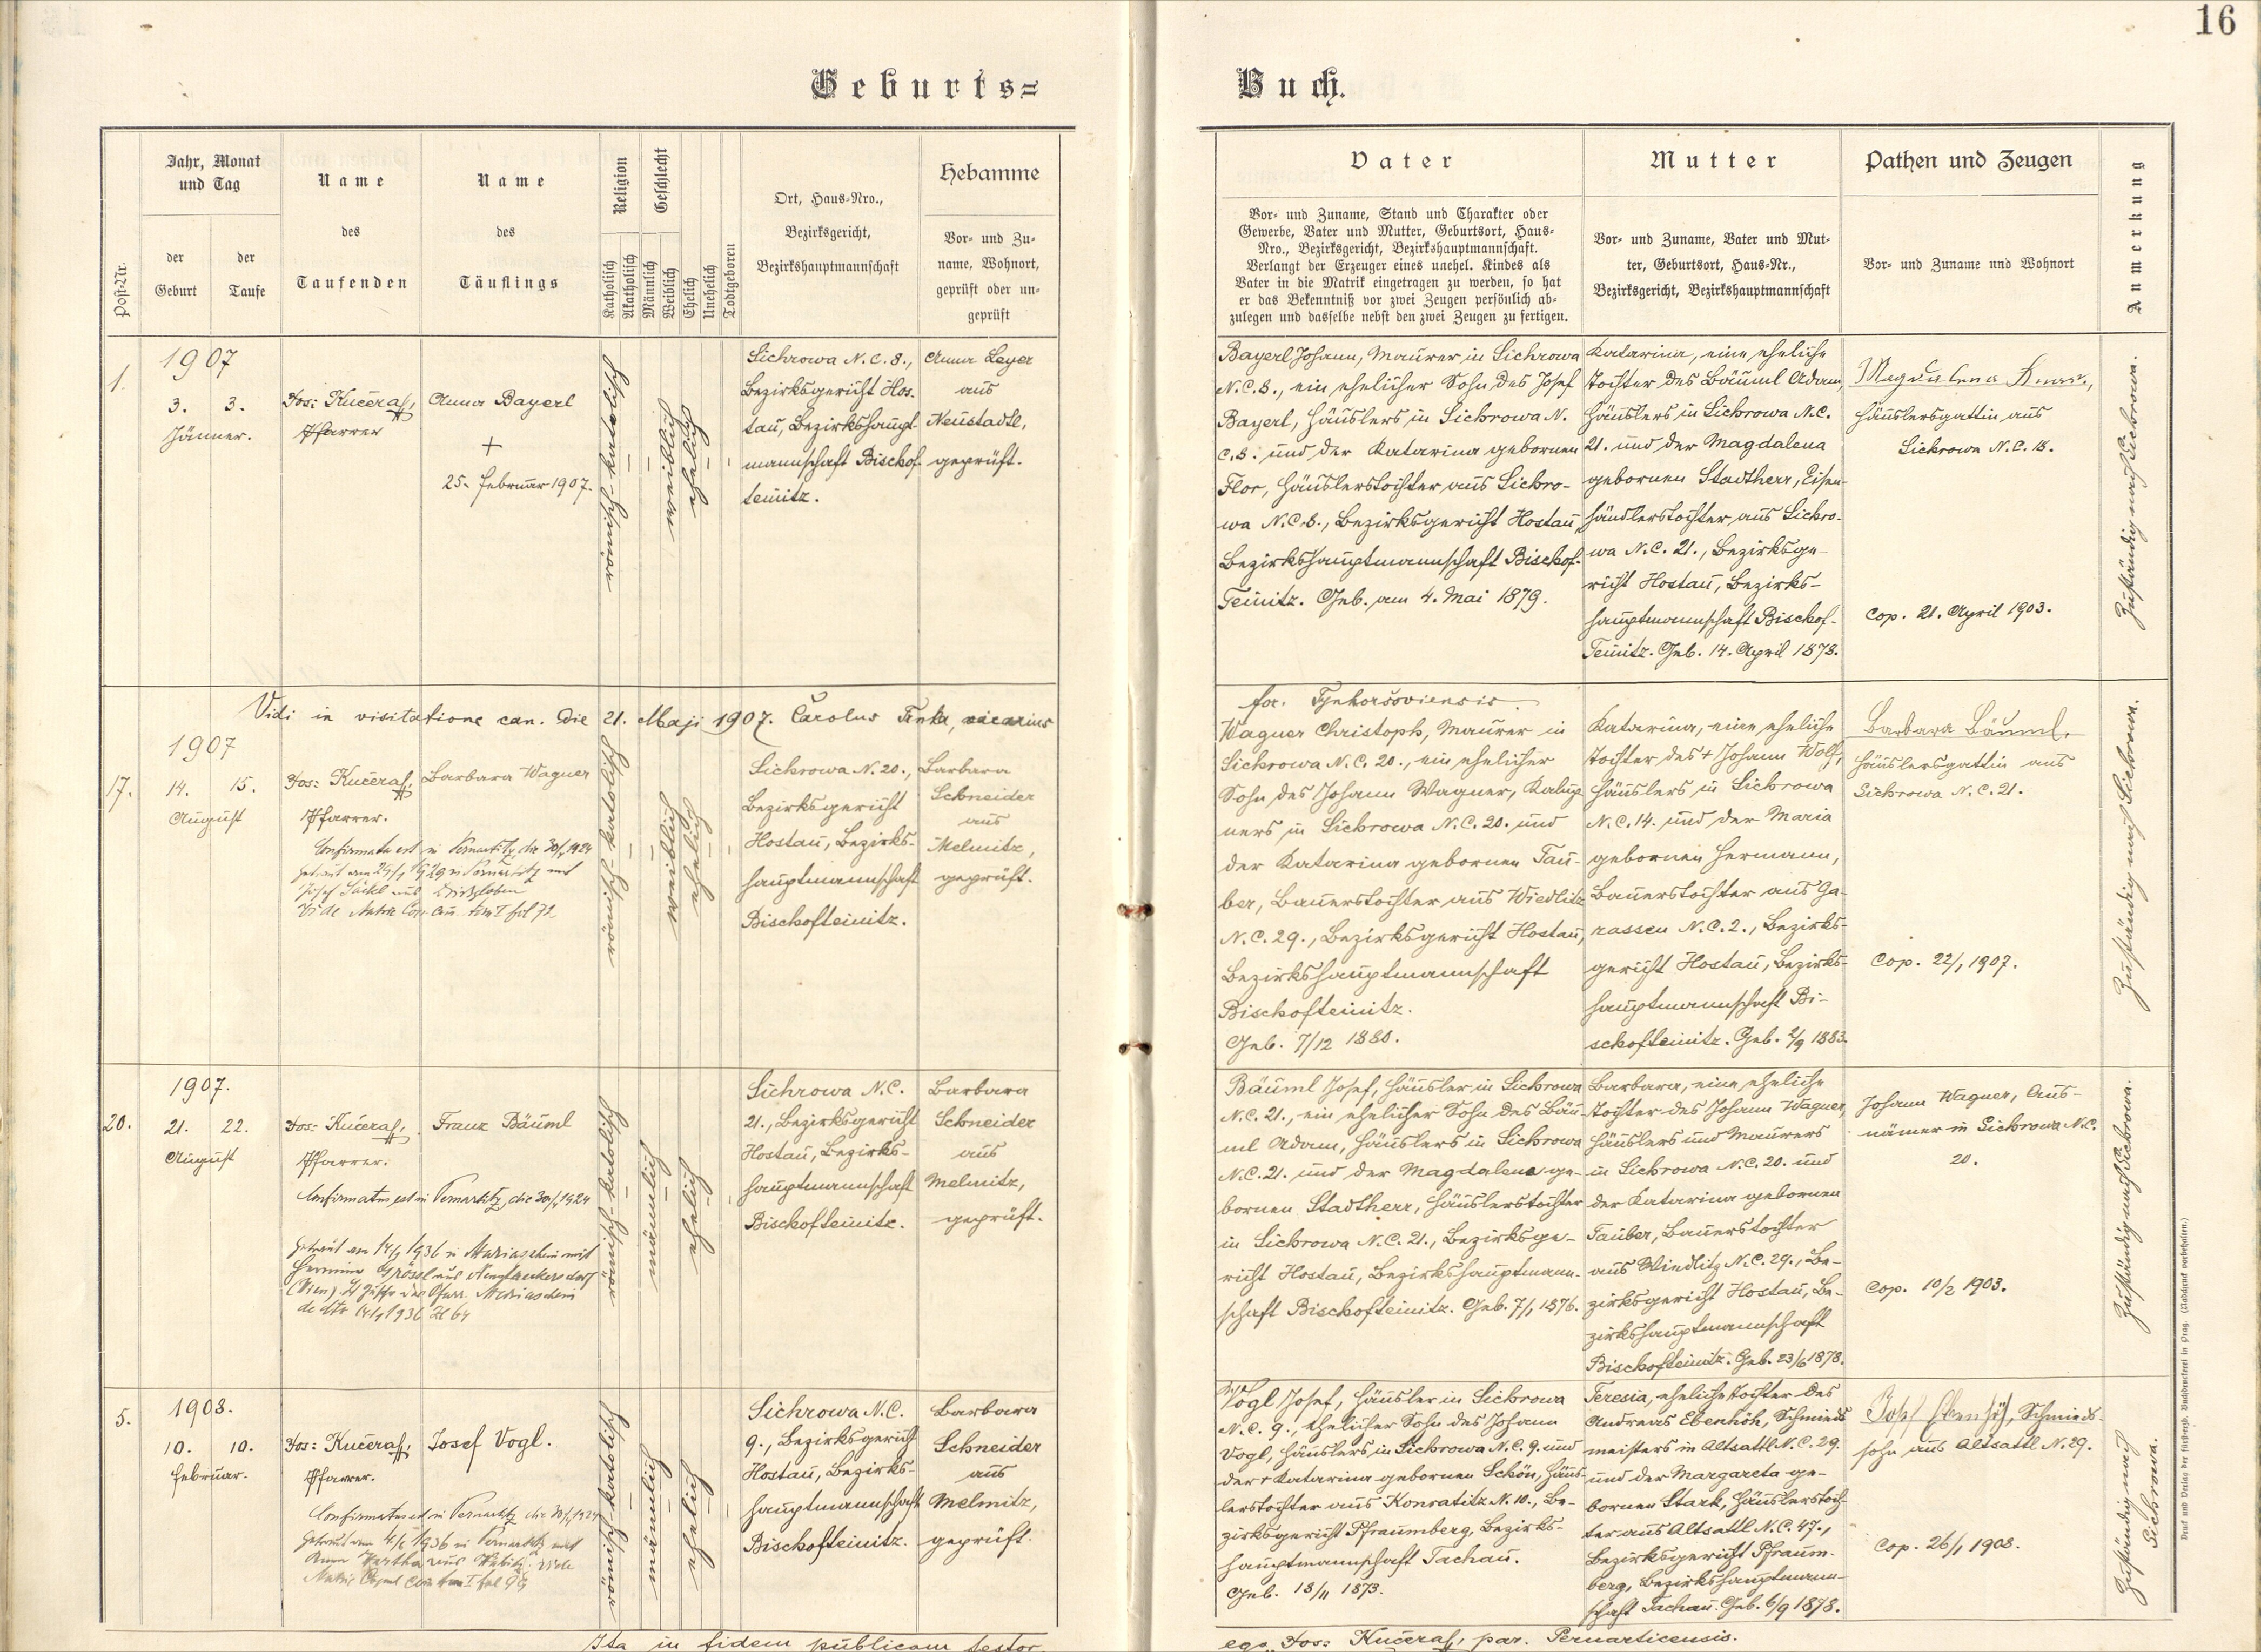 16
Geburts=
Buch.
Post-Nr.
Jahr, Monat
und Tag
der
Geburt
der
Taufe
Name
des
Taufenden
Name
des
Täuflings
Religion
Katholisch
Akatholisch
Geschlecht
Männlich
Weiblich
Ehelich
Unehelich
Todtgeboren
Ort, Haus-Nro.,
Bezirksgericht,
Bezirkshauptmannschaft
Hebamme
Vor- und Zu-
name, Wohnort,
geprüft oder un-
geprüft
Vater
Vor- und Zuname, Stand und Charakter oder
Gewerbe, Vater und Mutter, Geburtsort, Haus-
Nro., Bezirksgericht, Bezirkshauptmannschaft.
Verlangt der Erzeuger eines unehel. Kindes als
Vater in die Matrik eingetragen zu werden, so hat
er das Bekenntniß vor zwei Zeugen persönlich ab-
zulegen und dasselbe nebst den zwei Zeugen zu fertigen.
Mutter
Vor- und Zuname, Vater und Mut-
ter, Geburtsort, Haus-Nr.,
Bezirksgericht, Bezirkshauptmannschaft
Pathen und Zeugen
Vor- und Zuname und Wohnort
Anmerkung
1.
1907
3. 3.
Jänner.
Jos: Kučera,
Pfarrer
Anna Bayerl
+
25. Februar 1907.
römisch-katolisch
weiblich
ehelich
Sichrowa N. C. 8.,
Bezirksgericht Hos-
tau, Bezirkshaupt-
mannschaft Bischof-
teinitz.
Anna Leyer
aus
Neustadtl,
geprüft.
Bayerl Johann, Maurer in Sichrowa
N.C.8., ein ehelicher Sohn des Josef
Bayerl, Häuslers in Sichrowa N.
C.8. und der Katarina gebornen
Flor, Häuslerstochter aus Sichro-
wa N.C.8., Bezirksgericht Hostau,
Bezirkshauptmannschaft Bischof-
Teinitz. Geb. am 4. Mai 1879.
Katarina, eine eheliche
Tochter des Bäuml Adam,
Häuslers in Sichrowa N.C.
21. und der Magdalena
gebornen Stadtherr, Eisen-
händlerstochter aus Sichro-
wa N.C. 21., Bezirksge-
richt Hostau, Bezirks-
hauptmannschaft Bischof-
Teinitz. Geb. 14. April 1878.
Magdalena
Häuslersgattin aus
Sichrowa N.C. 18.
Cop. 21. April 1903.
Zuständig nach Sichrowa.
Vidi in visitatione can. die 21. Maji 1907. Carolus vicarius
for.
17.
1907
14. 15.
August
Jos: Kučera,
Pfarrer.
Barbara Wagner
Confirmata est in Pernartitz, die 30/ 1924
Getraut am 1929 in Pernartitz mit
Josef aus
Vide Matric Cop. tom I fol 72
römisch-katolisch
weiblich
ehelich
Sichrowa N. 20.,
Bezirksgericht
Hostau, Bezirks-
hauptmannschaft
Bischofteinitz.
Barbara
Schneider
aus
Melmitz,
geprüft.
Wagner Christoph, Maurer in
Sichrowa N.C. 20., ein ehelicher
Sohn des Johann Wagner, Kalup-
ners in Sichrowa N.C. 20. und
der Katarina gebornen Tau-
ber, Bauerstochter aus Wiedlitz
N.C. 29., Bezirksgericht Hostau,
Bezirkshauptmannschaft
Bischofteinitz.
Geb. 7/12 1880.
Katarina, eine eheliche
Tochter des + Johann Wolf,
Häuslers in Sichrowa
N.C. 14. und der Maria
gebornen Hermann,
Bauerstochter aus Ga-
rassen N.C. 2., Bezirks-
gericht Hostau, Bezirks-
hauptmannschaft Bi-
schofteinitz. Geb. 2/9 1883.
Barbara Bäuml,
Häuslersgattin aus
Sichrowa N.C. 21.
Cop. 22/1 1907.
Zuständig nach Sichrowa.
20.
1907.
21. 22.
August
Jos: Kučera,
Pfarrer.
Franz Bäuml
Confirmatus est in Pernartitz, die 30/ 1924
Getraut am 1936 in Mariaschein mit
Hermine Grössl aus
(Wien). Mariaschein
de dto 1936 Zl 64
römisch-katolisch
männlich
ehelich
Sichrowa N.C.
21., Bezirksgericht
Hostau, Bezirks-
hauptmannschaft
Bischofteinitz.
Barbara
Schneider
aus
Melmitz,
geprüft.
Bäuml Josef, Häusler in Sichrowa
N.C. 21., ein ehelicher Sohn des Bäu-
ml Adam, Häuslers in Sichrowa
N.C. 21. und der Magdalena ge-
bornen Stadtherr, Häuslerstochter
in Sichrowa N.C. 21., Bezirksge-
richt Hostau, Bezirkshauptmann-
schaft Bischofteinitz. Geb. 7/1 1876.
Barbara, eine eheliche
Tochter des Johann Wagner,
Häuslers und Maurers
in Sichrowa N.C. 20. und
der Katarina gebornen
Tauber, Bauerstochter
aus Wiedlitz N.C. 29., Be-
zirksgericht Hostau, Be-
zirkshauptmannschaft
Bischofteinitz. Geb. 23/6 1878.
Johann Wagner, Aus-
nämer in Sichrowa N.C.
20.
Cop. 10/2 1903.
Zuständig nach Sichrowa.
5.
1908.
10. 10.
Februar.
Jos: Kučera,
Pfarrer.
Josef Vogl.
Confirmatus est in Pernartitz die 30/ 1924
Getraut am 1936 in Pernartitz mit
Anna aus Vide
Matric Copul tom I fol 99
römisch-katolisch
männlich
ehelich
Sichrowa N.C.
9., Bezirksgericht
Hostau, Bezirks-
hauptmannschaft
Bischofteinitz.
Barbara
Schneider
aus
Melmitz,
geprüft.
Vogl Josef, Häusler in Sichrowa
N.C. 9., ehelicher Sohn des Johann
Vogl, Häuslers in Sichrowa N.C. 9. und
der + Katarina gebornen Schön, Häus-
lerstochter aus Konratitz N. 10., Be-
zirksgericht Pfraumberg, Bezirks-
hauptmannschaft Tachau.
Geb. 18/11 1873.
Teresia, eheliche Tochter des
Andreas Ebenhöh, Schmied-
meisters in Altsattl N.C. 29.
und der Margareta ge-
bornen Stark, Häuslerstoch-
ter aus Altsattl N.C. 47.,
Bezirksgericht Pfraum-
berg, Bezirkshauptmann-
schaft Tachau. Geb. 6/9 1878.
Josef Ebenhöh, Schmieds-
sohn aus Altsattl N. 29.
Cop. 26/1 1908.
Zuständig nach
Sichrowa.
Ita in fidem publicam testor
ego Jos: Kučera, par. Pernarticensis.
Druck und Verlag der fürsterzb. Buchdruckerei in Prag. (Nachdruck vorbehalten.)